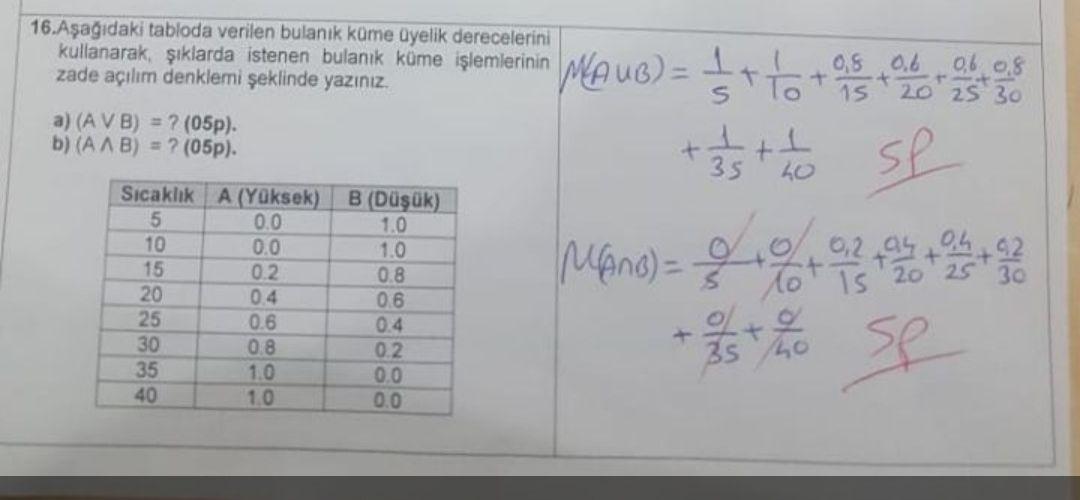 16.Aşağıdaki tabloda verilen bulanık küme üyelik derecelerini
kullanarak, şıklarda istenen bulanık küme işlemlerinin
zade açılım denklemi şeklinde yazınız.
a) (A V B) = ? (05p).
b) (A Λ B) = ? (05p).
Sıcaklık A (Yüksek) B (Düşük)
5 0.0 1.0
10 0.0 1.0
15 0.2 0.8
20 0.4 0.6
25 0.6 0.4
30 0.8 0.2
35 1.0 0.0
40 1.0 0.0
M(AUB) = 1/5 + 1/10 + 0,8/15 + 0,6/20 + 0,6/25 + 0,8/30
+ 1/35 + 1/40 5P
M(A∩B) = 0/5 + 0/10 + 0,2/15 + 0,4/20 + 0,4/25 + 0,2/30
+ 0/35 + 0/40 5P